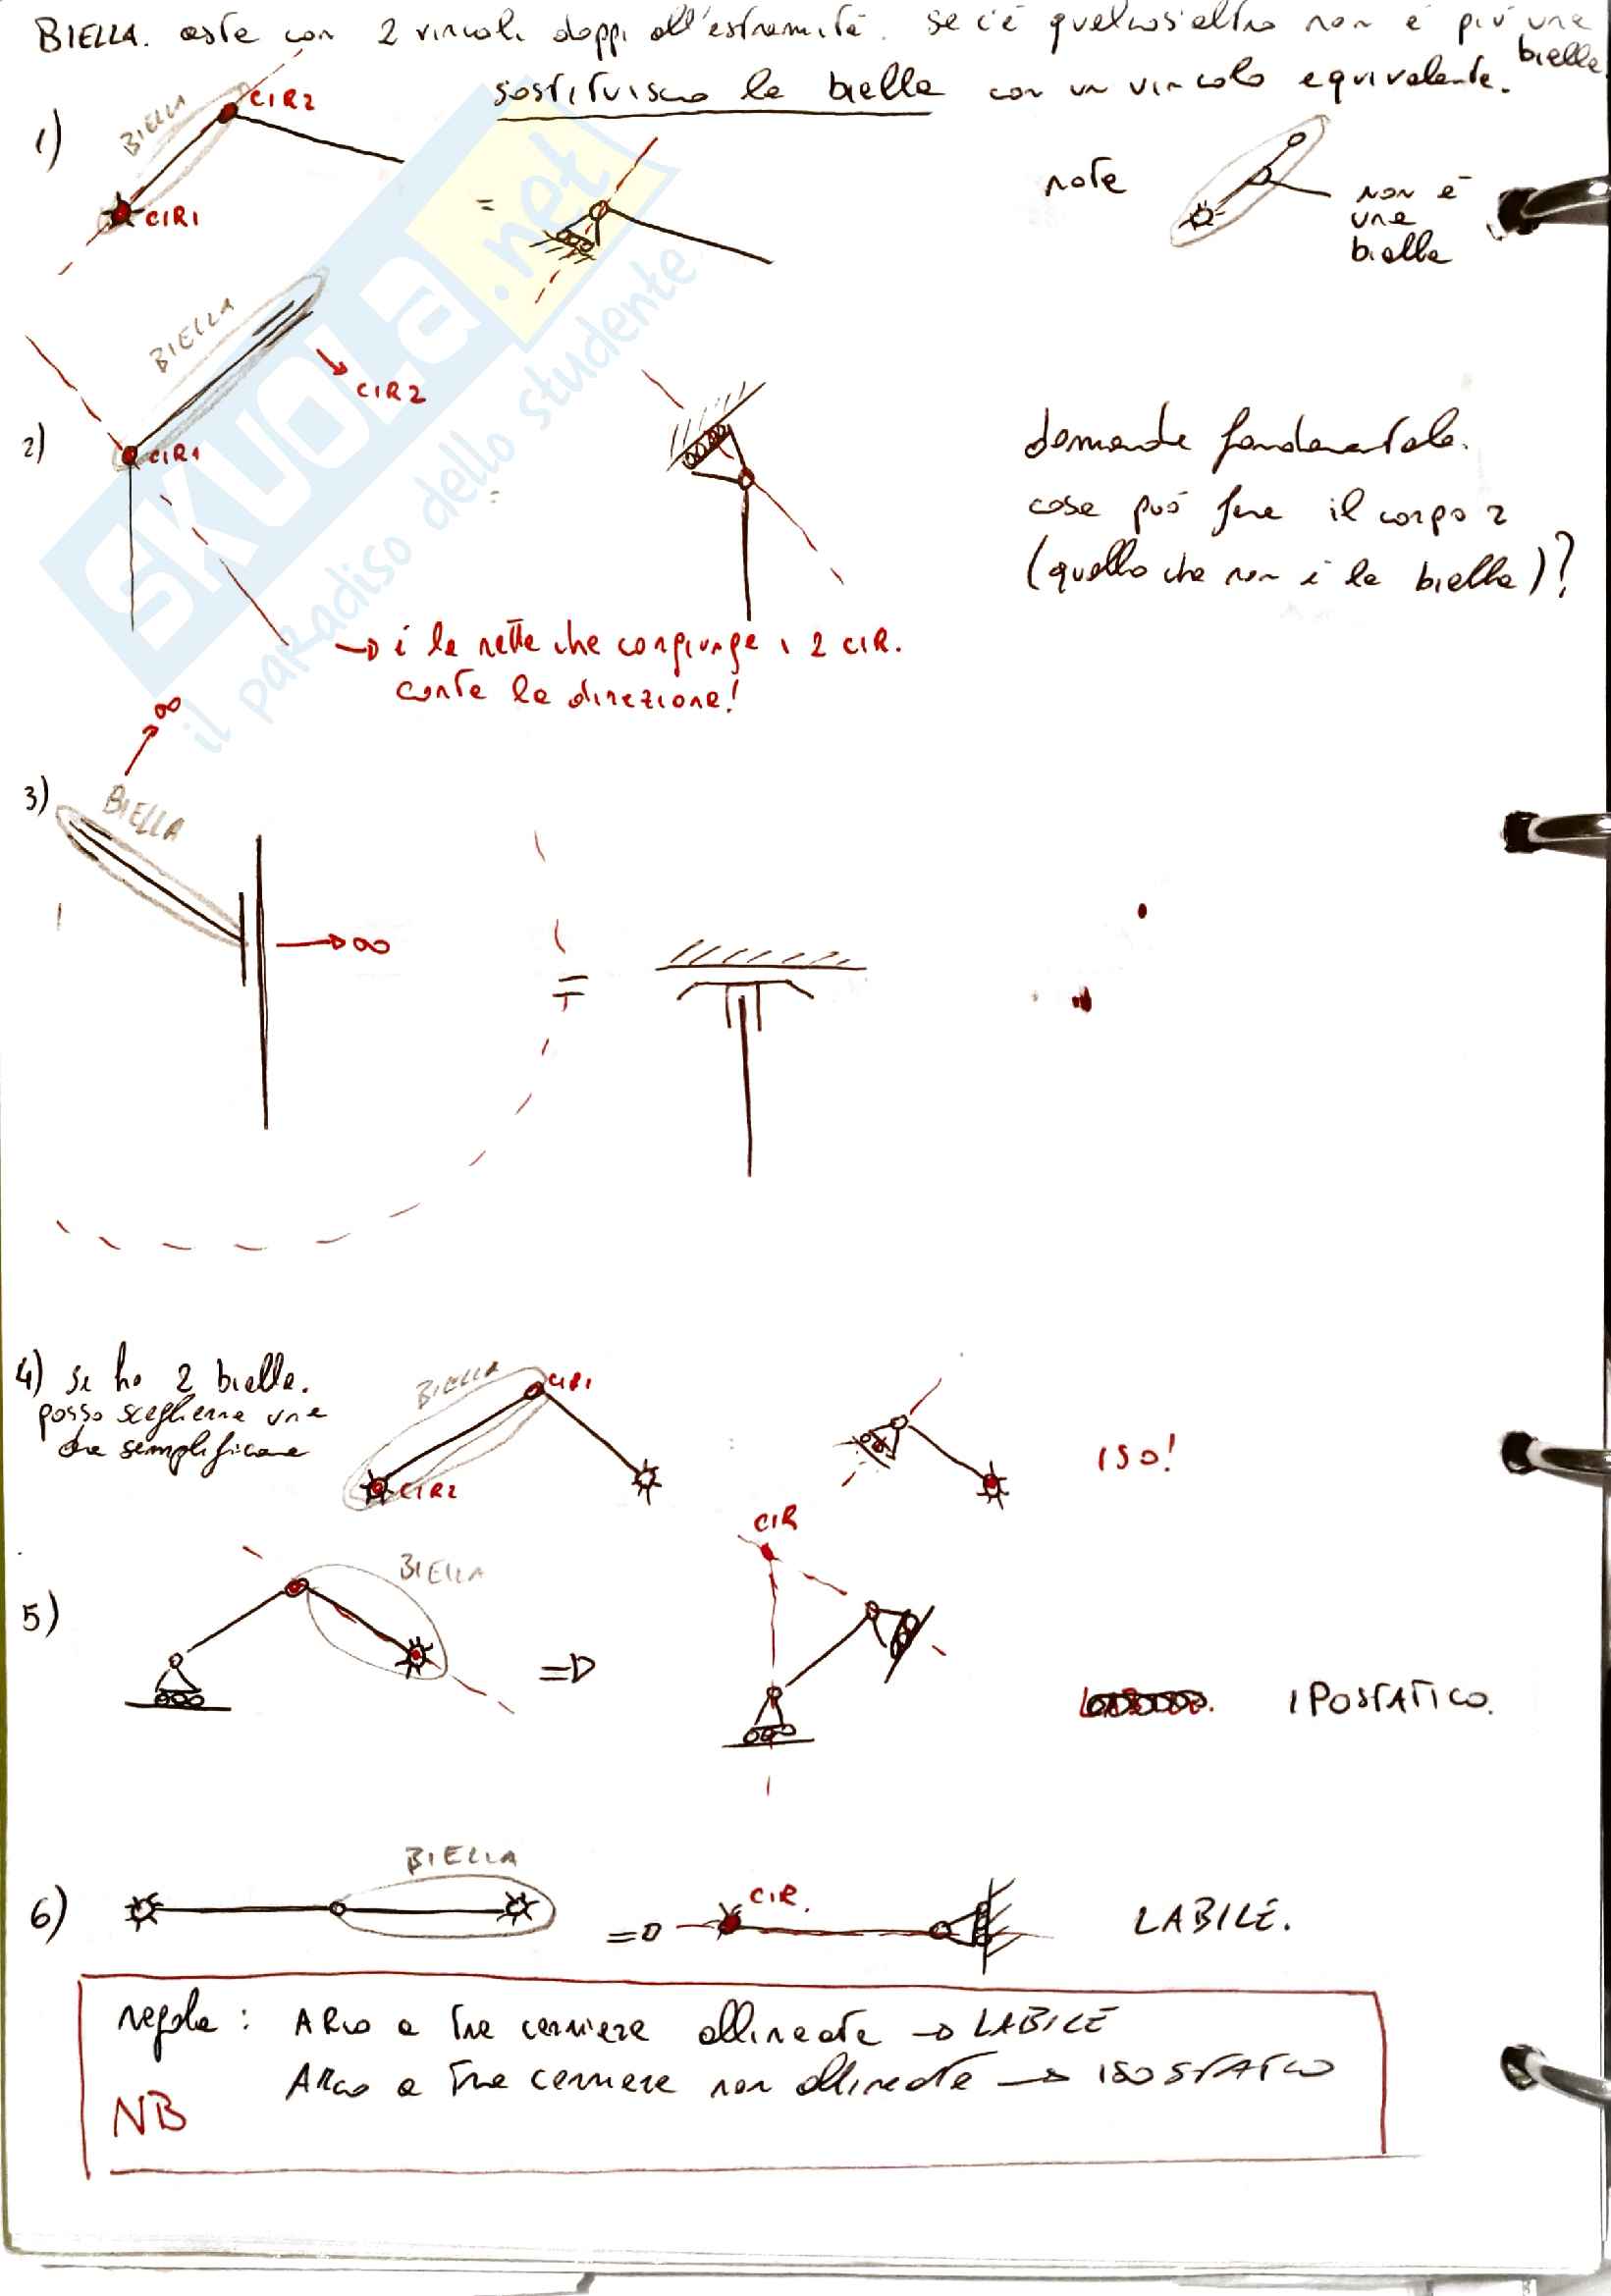 BIELLA. aste con 2 vincoli doppi all'estremità. se c'è qualcos'altro non è più una biella
sostituisco la biella con un vincolo equivalente.
1)
BIELLA
CIR2
CIR1
=
note
non è
una
biella
BIELLA
CIR2
2)
CIR1
=
domanda fondamentale.
cosa può fare il corpo 2
(quello che non è la biella)?
→ è la retta che congiunge i 2 CIR.
conta la direzione!
∞
3)
BIELLA
∞
=
4) se ho 2 bielle.
posso sceglierne una
da semplificare
BIELLA
CIR1
CIR2
ISO!
CIR
5)
BIELLA
=>
IPOSTATICO.
6)
BIELLA
=>
CIR.
LABILE.
regola: ARCO a tre cerniere allineate → LABILE
ARCO a tre cerniere non allineate → ISOSTATICO
NB
SKUOLa.net
il paradiso dello studente